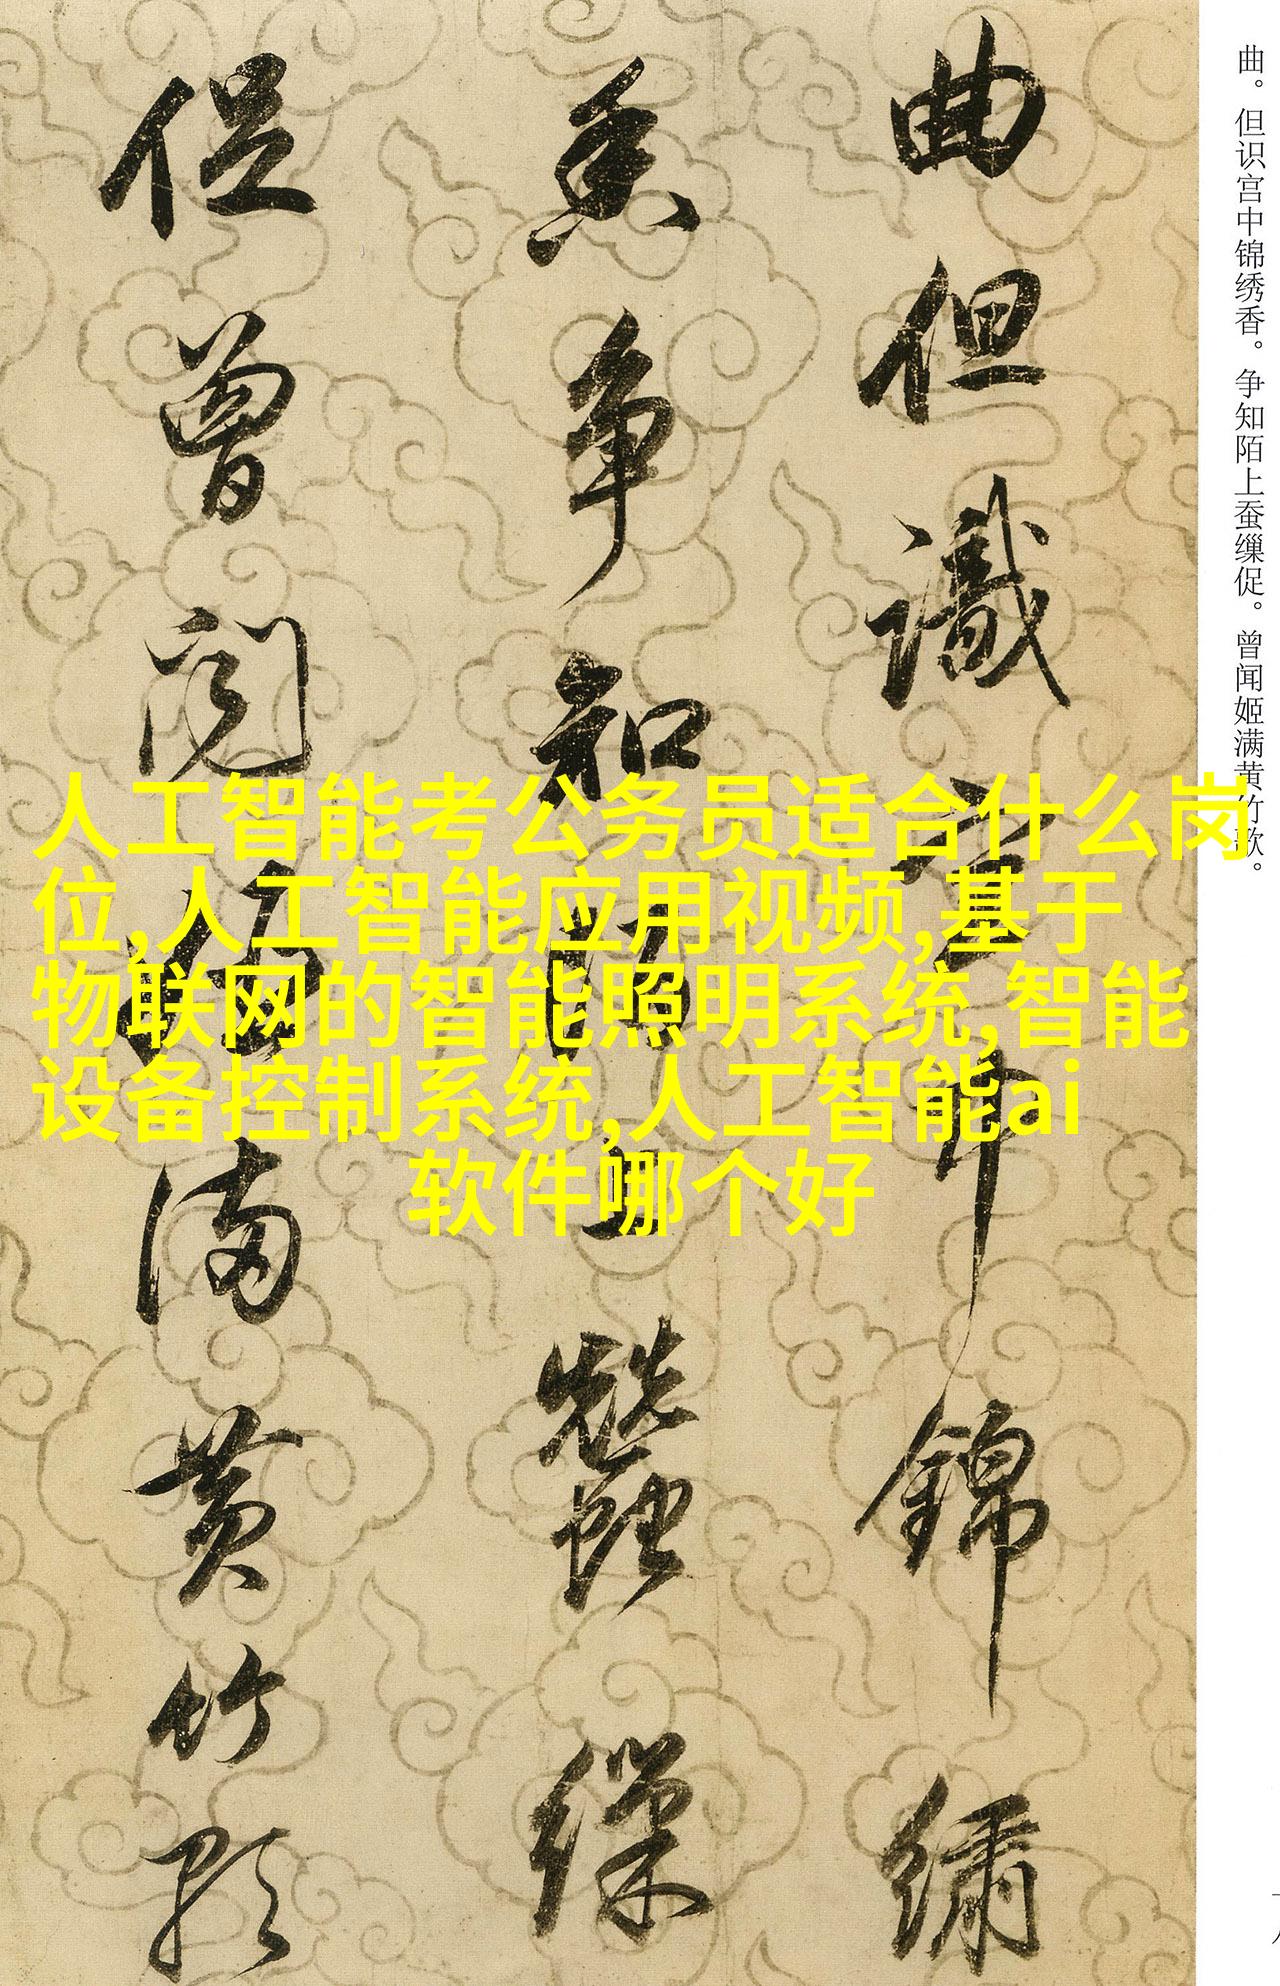 曲。但识宫中锦绣香。争知陌上蚕缫促。曾闻姬满黄竹歌。
曲但識宮中錦繡
香争知陌上蠶繰
促曾闻姬满黄竹歌
人工智能考公务员适合什么岗
位,人工智能应用视频,基于
物联网的智能照明系统,智能
设备控制系统,人工智能ai
软件哪个好